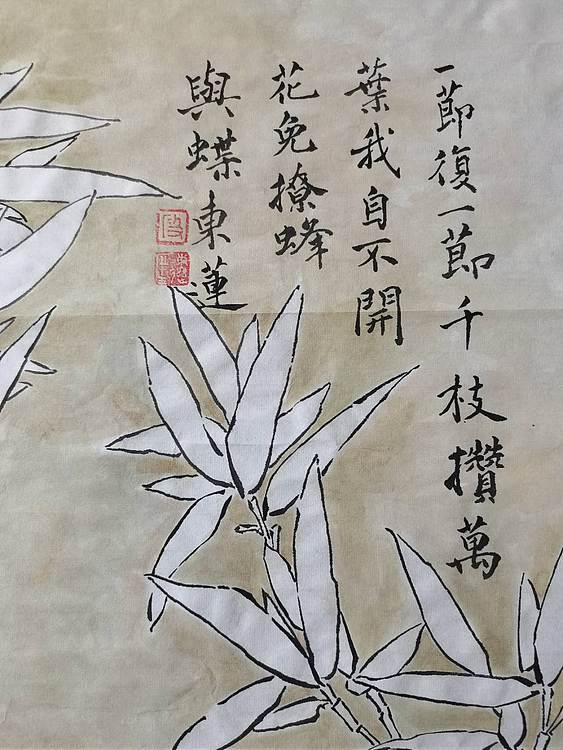 一節復一節千枝攢萬
葉我自不開
花免撩蜂
與蝶東蓮